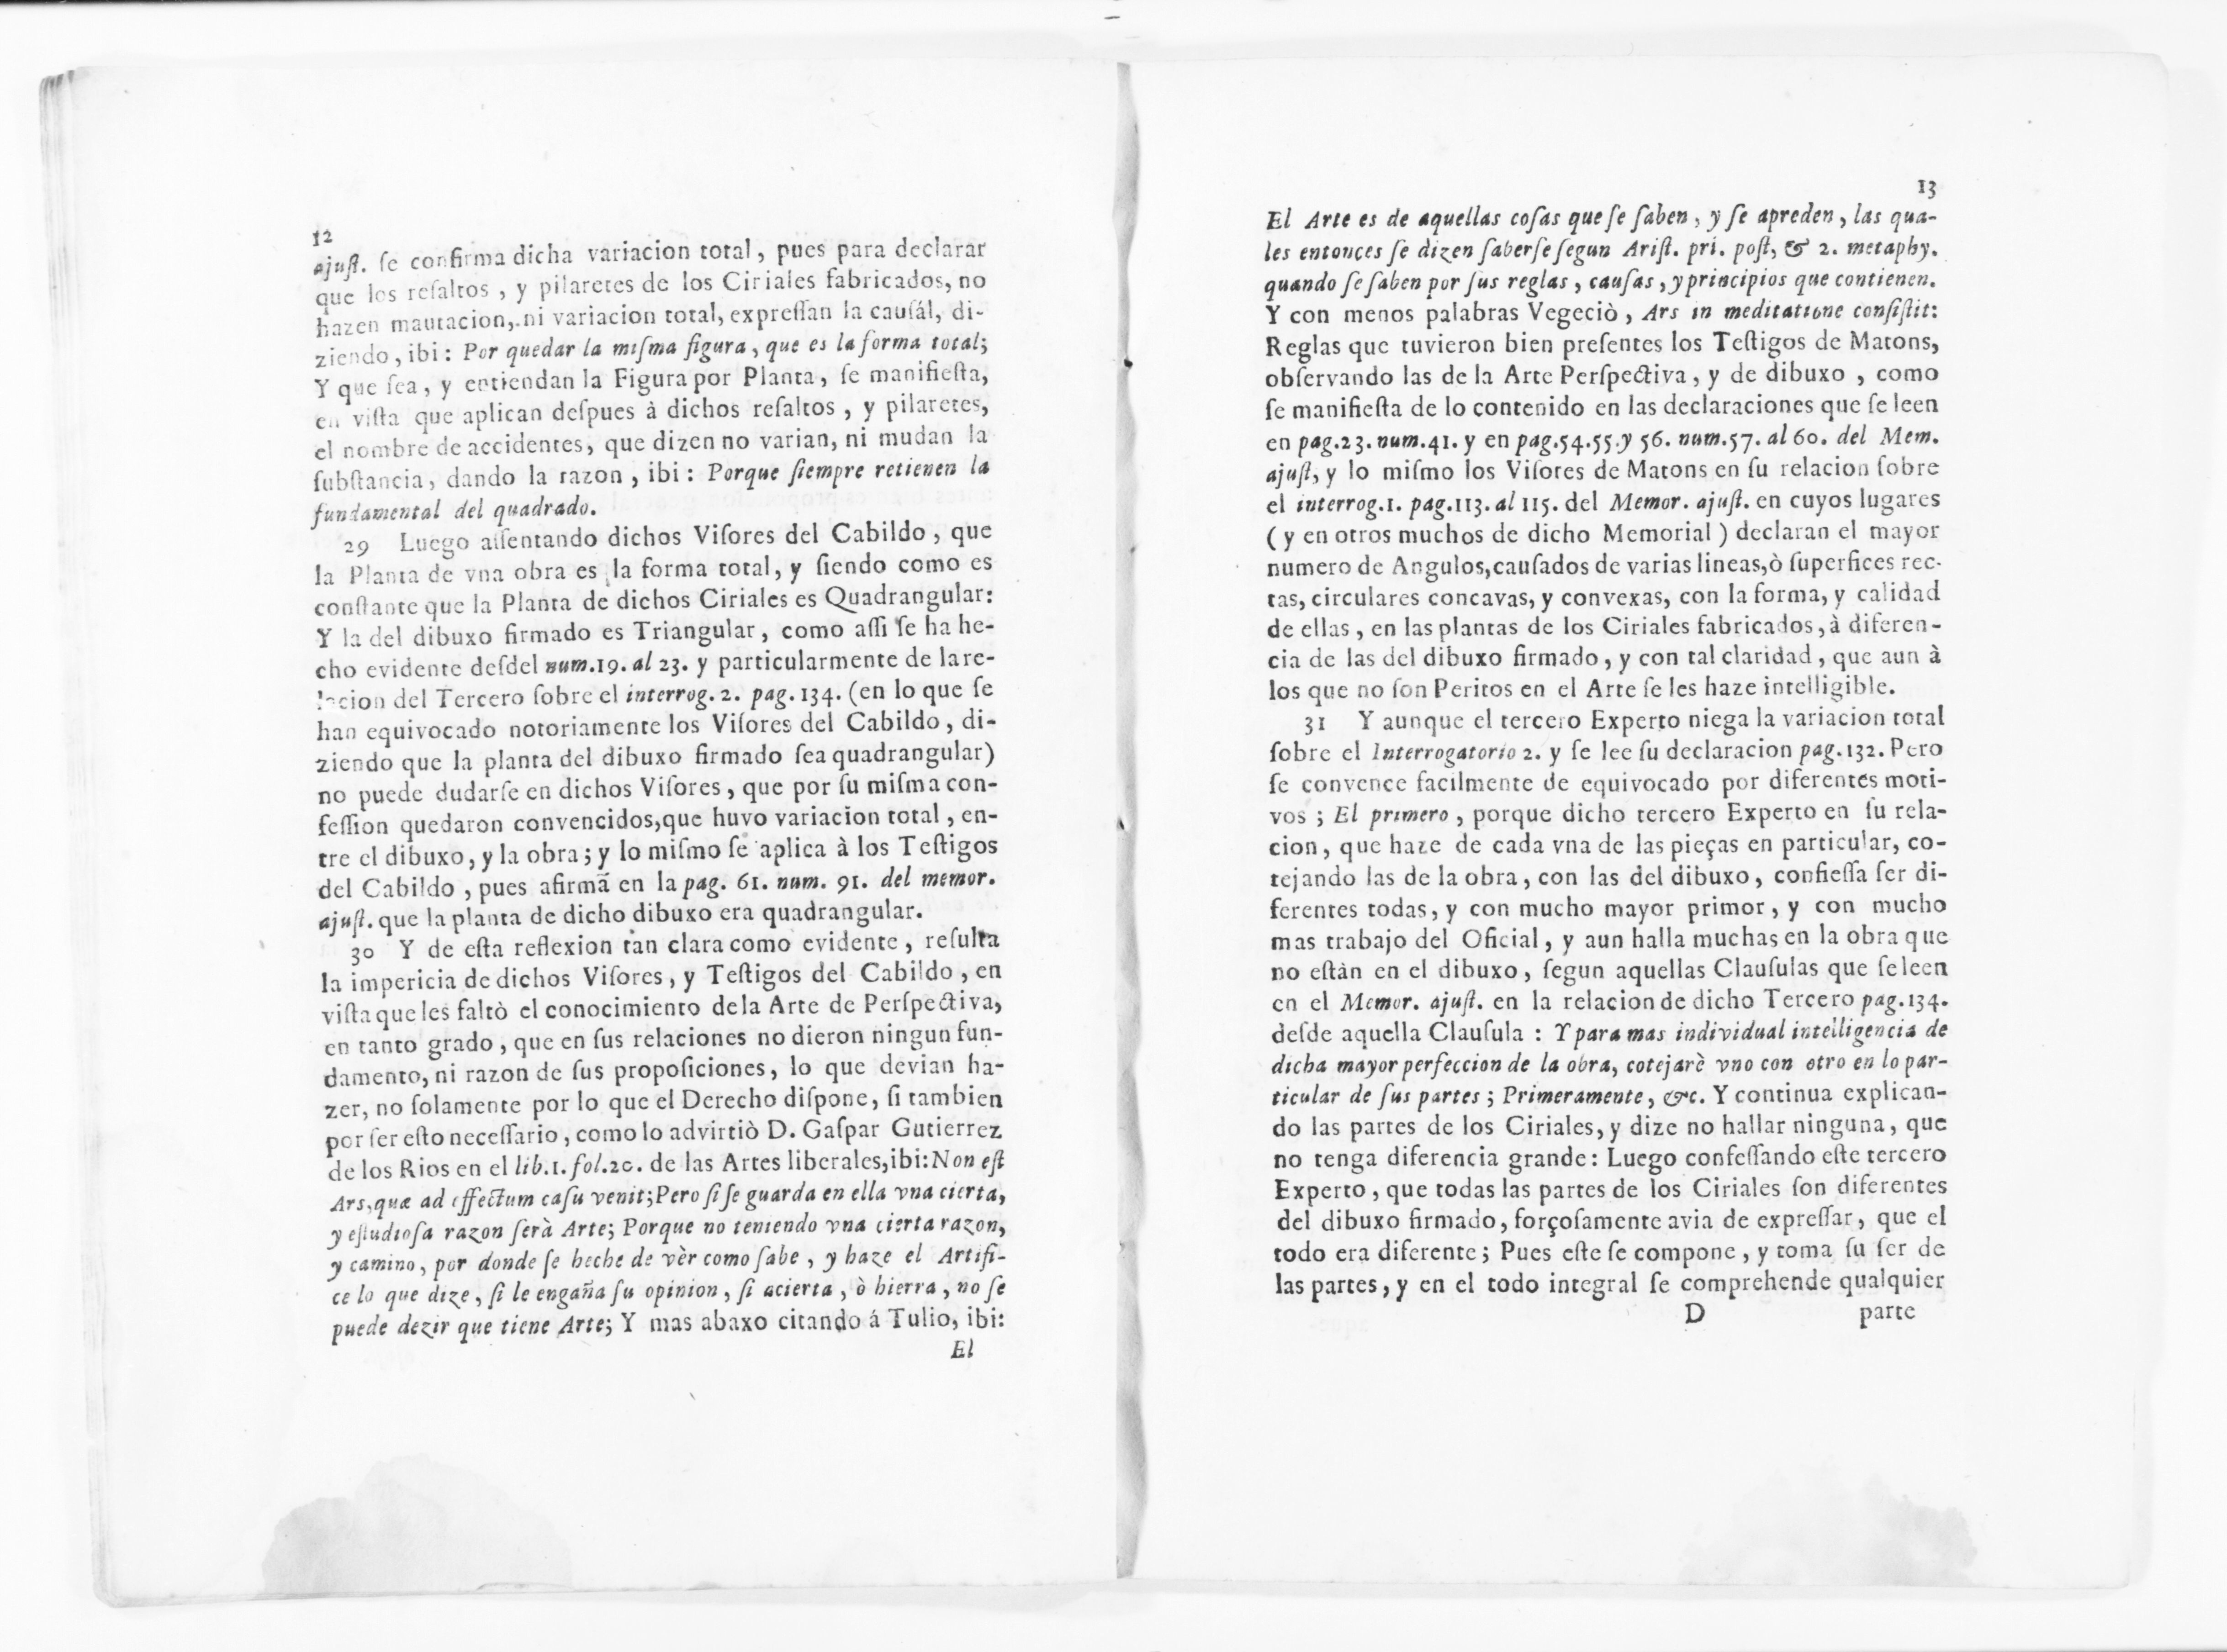 12
ajuſt. ſe confirma dicha variacion total, pues para declarar
que los reſaltos, y pilaretes de los Ciriales fabricados, no
hazen mautacion, ni variacion total, expreſſan la cauſál, di-
ziendo, ibi: Por quedar la miſma figura, que es la forma total;
Y que ſea, y entiendan la Figura por Planta, ſe manifieſta,
en viſta que aplican deſpues à dichos reſaltos, y pilaretes,
el nombre de accidentes, que dizen no varian, ni mudan la
ſubſtancia, dando la razon, ibi: Porque ſiempre retienen la
fundamental del quadrado.
29 Luego aſſentando dichos Viſores del Cabildo, que
la Planta de vna obra es la forma total, y ſiendo como es
conſtante que la Planta de dichos Ciriales es Quadrangular:
Y la del dibuxo firmado es Triangular, como aſſi ſe ha he-
cho evidente deſdel num.19. al 23. y particularmente de la re-
lacion del Tercero ſobre el interrog. 2. pag. 134. (en lo que ſe
han equivocado notoriamente los Viſores del Cabildo, di-
ziendo que la planta del dibuxo firmado ſea quadrangular)
no puede dudarſe en dichos Viſores, que por ſu miſma con-
feſſion quedaron convencidos, que huvo variacion total, en-
tre el dibuxo, y la obra; y lo miſmo ſe aplica à los Teſtigos
del Cabildo, pues afirmã en la pag. 61. num. 91. del memor.
ajuſt. que la planta de dicho dibuxo era quadrangular.
30 Y de eſta reflexion tan clara como evidente, reſulta
la impericia de dichos Viſores, y Teſtigos del Cabildo, en
viſta que les faltò el conocimiento dela Arte de Perſpectiva,
en tanto grado, que en ſus relaciones no dieron ningun fun-
damento, ni razon de ſus propoſiciones, lo que devian ha-
zer, no ſolamente por lo que el Derecho diſpone, ſi tambien
por ſer eſto neceſſario, como lo advirtiò D. Gaſpar Gutierrez
de los Rios en el lib.1. fol.20. de las Artes liberales, ibi: Non eſt
Ars, quæ ad effectum caſu venit; Pero ſi ſe guarda en ella vna cierta,
y eſtudioſa razon ſerà Arte; Porque no teniendo vna cierta razon,
y camino, por donde ſe heche de vèr como ſabe, y haze el Artifi-
ce lo que dize, ſi le engaña ſu opinion, ſi acierta, ò hierra, no ſe
puede dezir que tiene Arte; Y mas abaxo citando á Tulio, ibi:
El
13
El Arte es de aquellas coſas que ſe ſaben, y ſe apreden, las qua-
les entonces ſe dizen ſaberſe ſegun Ariſt. pri. poſt, & 2. metaphy.
quando ſe ſaben por ſus reglas, cauſas, y principios que contienen.
Y con menos palabras Vegeciò, Ars in meditatione conſiſtit:
Reglas que tuvieron bien preſentes los Teſtigos de Matons,
obſervando las de la Arte Perſpectiva, y de dibuxo, como
ſe manifieſta de lo contenido en las declaraciones que ſe leen
en pag.23. num.41. y en pag.54.55.y 56. num.57. al 60. del Mem.
ajuſt, y lo miſmo los Viſores de Matons en ſu relacion ſobre
el interrog.1. pag.113. al 115. del Memor. ajuſt. en cuyos lugares
( y en otros muchos de dicho Memorial ) declaran el mayor
numero de Angulos, cauſados de varias lineas, ò ſuperfices rec-
tas, circulares concavas, y convexas, con la forma, y calidad
de ellas, en las plantas de los Ciriales fabricados, à diferen-
cia de las del dibuxo firmado, y con tal claridad, que aun à
los que no ſon Peritos en el Arte ſe les haze intelligible.
31 Y aunque el tercero Experto niega la variacion total
ſobre el Interrogatorio 2. y ſe lee ſu declaracion pag.132. Pero
ſe convence facilmente de equivocado por diferentes moti-
vos ; El primero, porque dicho tercero Experto en ſu rela-
cion, que haze de cada vna de las pieças en particular, co-
tejando las de la obra, con las del dibuxo, confieſſa ſer di-
ferentes todas, y con mucho mayor primor, y con mucho
mas trabajo del Oficial, y aun halla muchas en la obra que
no eſtàn en el dibuxo, ſegun aquellas Clauſulas que ſe leen
en el Memor. ajuſt. en la relacion de dicho Tercero pag.134.
deſde aquella Clauſula : Y para mas individual intelligencia de
dicha mayor perfeccion de la obra, cotejarè vno con otro en lo par-
ticular de ſus partes ; Primeramente, &c. Y continua explican-
do las partes de los Ciriales, y dize no hallar ninguna, que
no tenga diferencia grande: Luego confeſſando eſte tercero
Experto, que todas las partes de los Ciriales ſon diferentes
del dibuxo firmado, forçoſamente avia de expreſſar, que el
todo era diferente; Pues eſte ſe compone, y toma ſu ſer de
las partes, y en el todo integral ſe comprehende qualquier
D parte